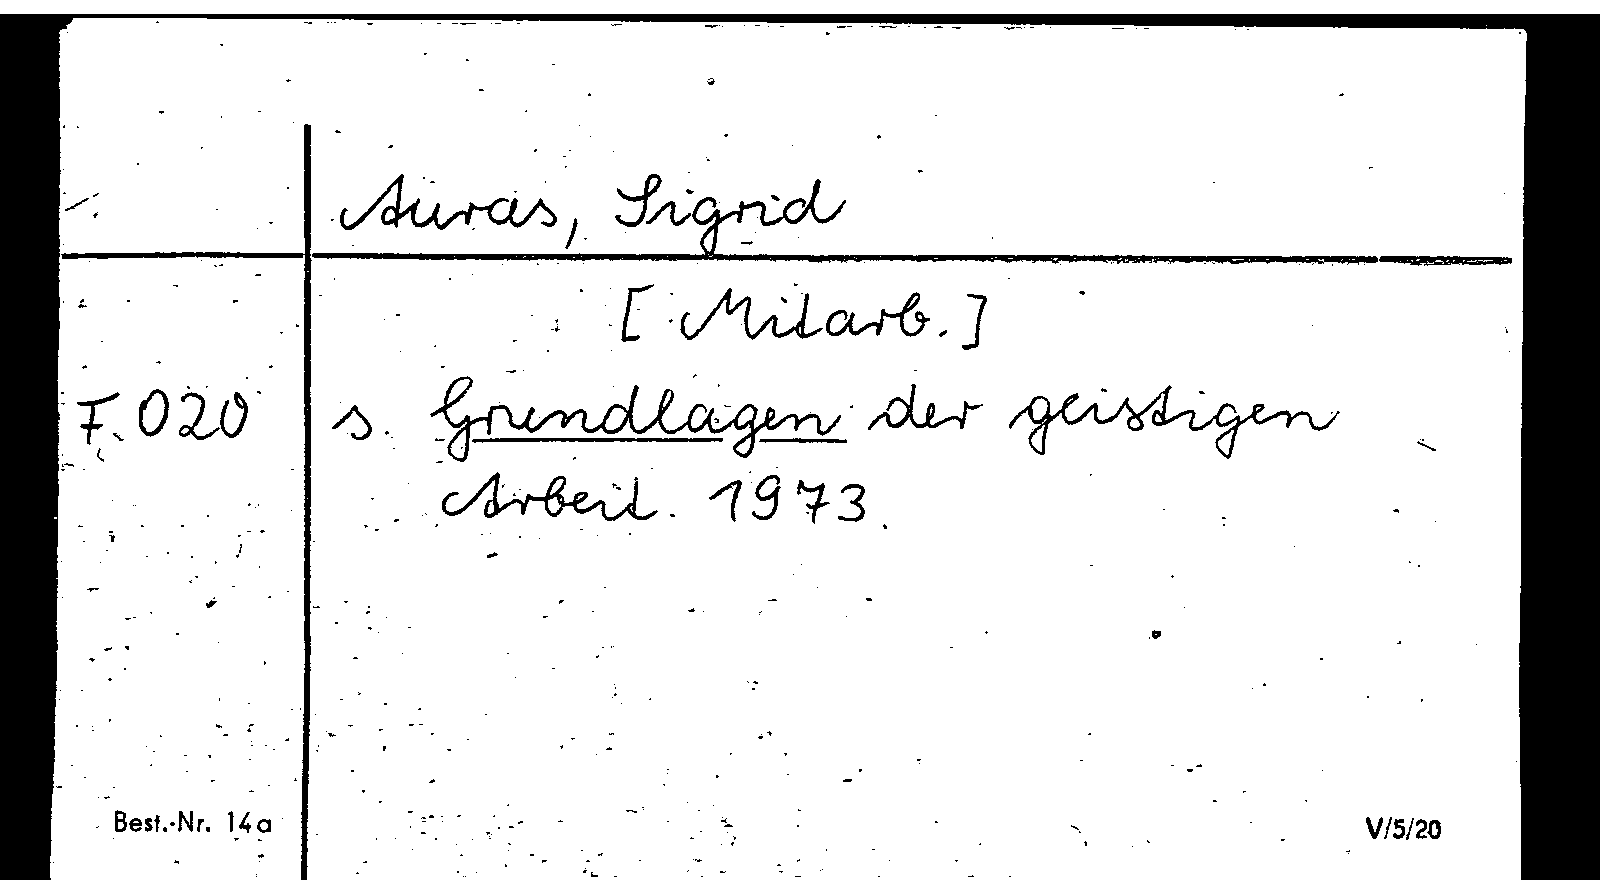 Auras, Sigrid
[Mitarb.]
F. 020 s. Grundlagen der geistigen
Arbeit. 1973.
Best.-Nr. 14a V/5/20